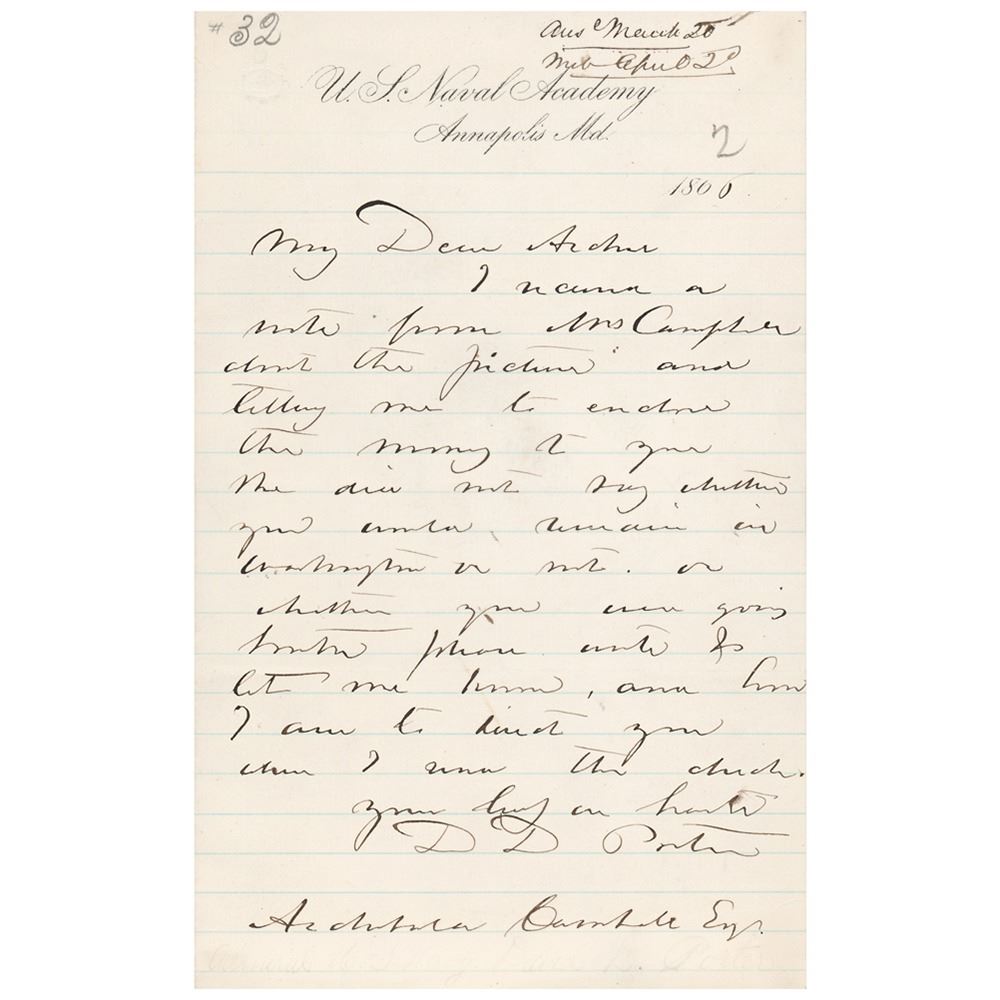 # 32
Ansd March 26
April 2d
U. S. Naval Academy
Annapolis Md.
2
1866
My Dear Archie
I received a
note from Mrs Campbell
about the picture and
telling me to enclose
the money to you
She did not say whether
you would remain in
Washington or not. or
whether you were going
please write to
let me know, and how
I am to direct you
when I send the check.
yours in haste
D D Porter
Archibald Campbell Esqr.
Admiral David D. Porter